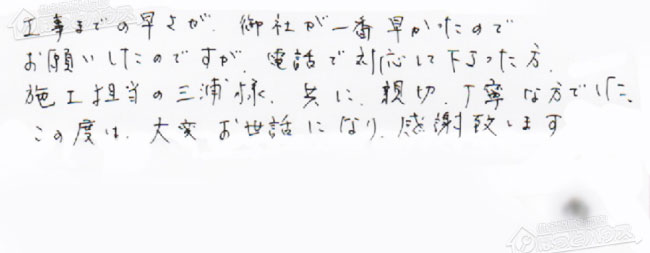 工事までの早さが、御社が一番早かったので
お願いしたのですが、電話で対応して下さった方、
施工担当の三浦様、共に、親切、丁寧な方でした。
この度は、大変お世話になり、感謝致します